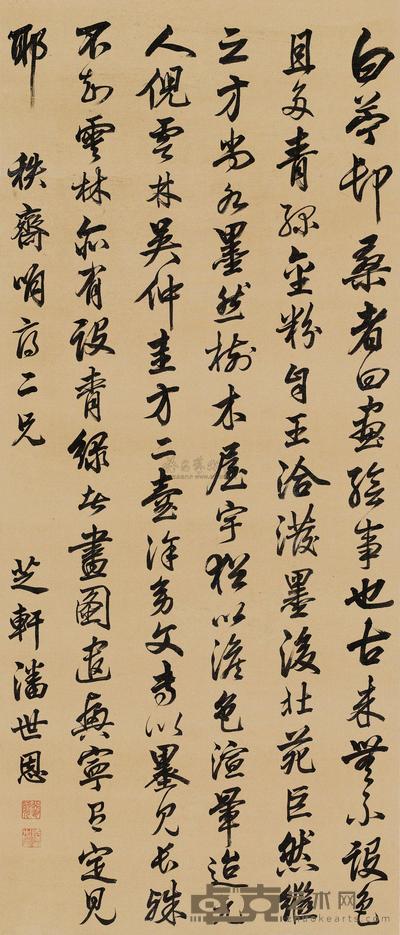 白苧邨桑者曰畫繪事也古來無不設色
且多青綠金粉自王洽潑墨後北苑巨然繼
之方尚水墨然樹木屋宇猶以澹色渲暈迨元
人倪雲林吳仲圭方〻壺徐幼文專以墨見長殊
不知雲林亦有設青綠者畫圖遣興寧有定見
耶 秩齋明府二兄 芝軒潘世恩